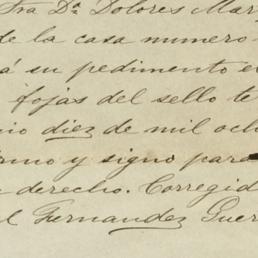 Sra Dª Dolores Mar
de la casa numero
á su pedimento e
fojas del sello te
nio diez de mil och
irmo y signo para
derecho. Corregid
l Fernandez Guer